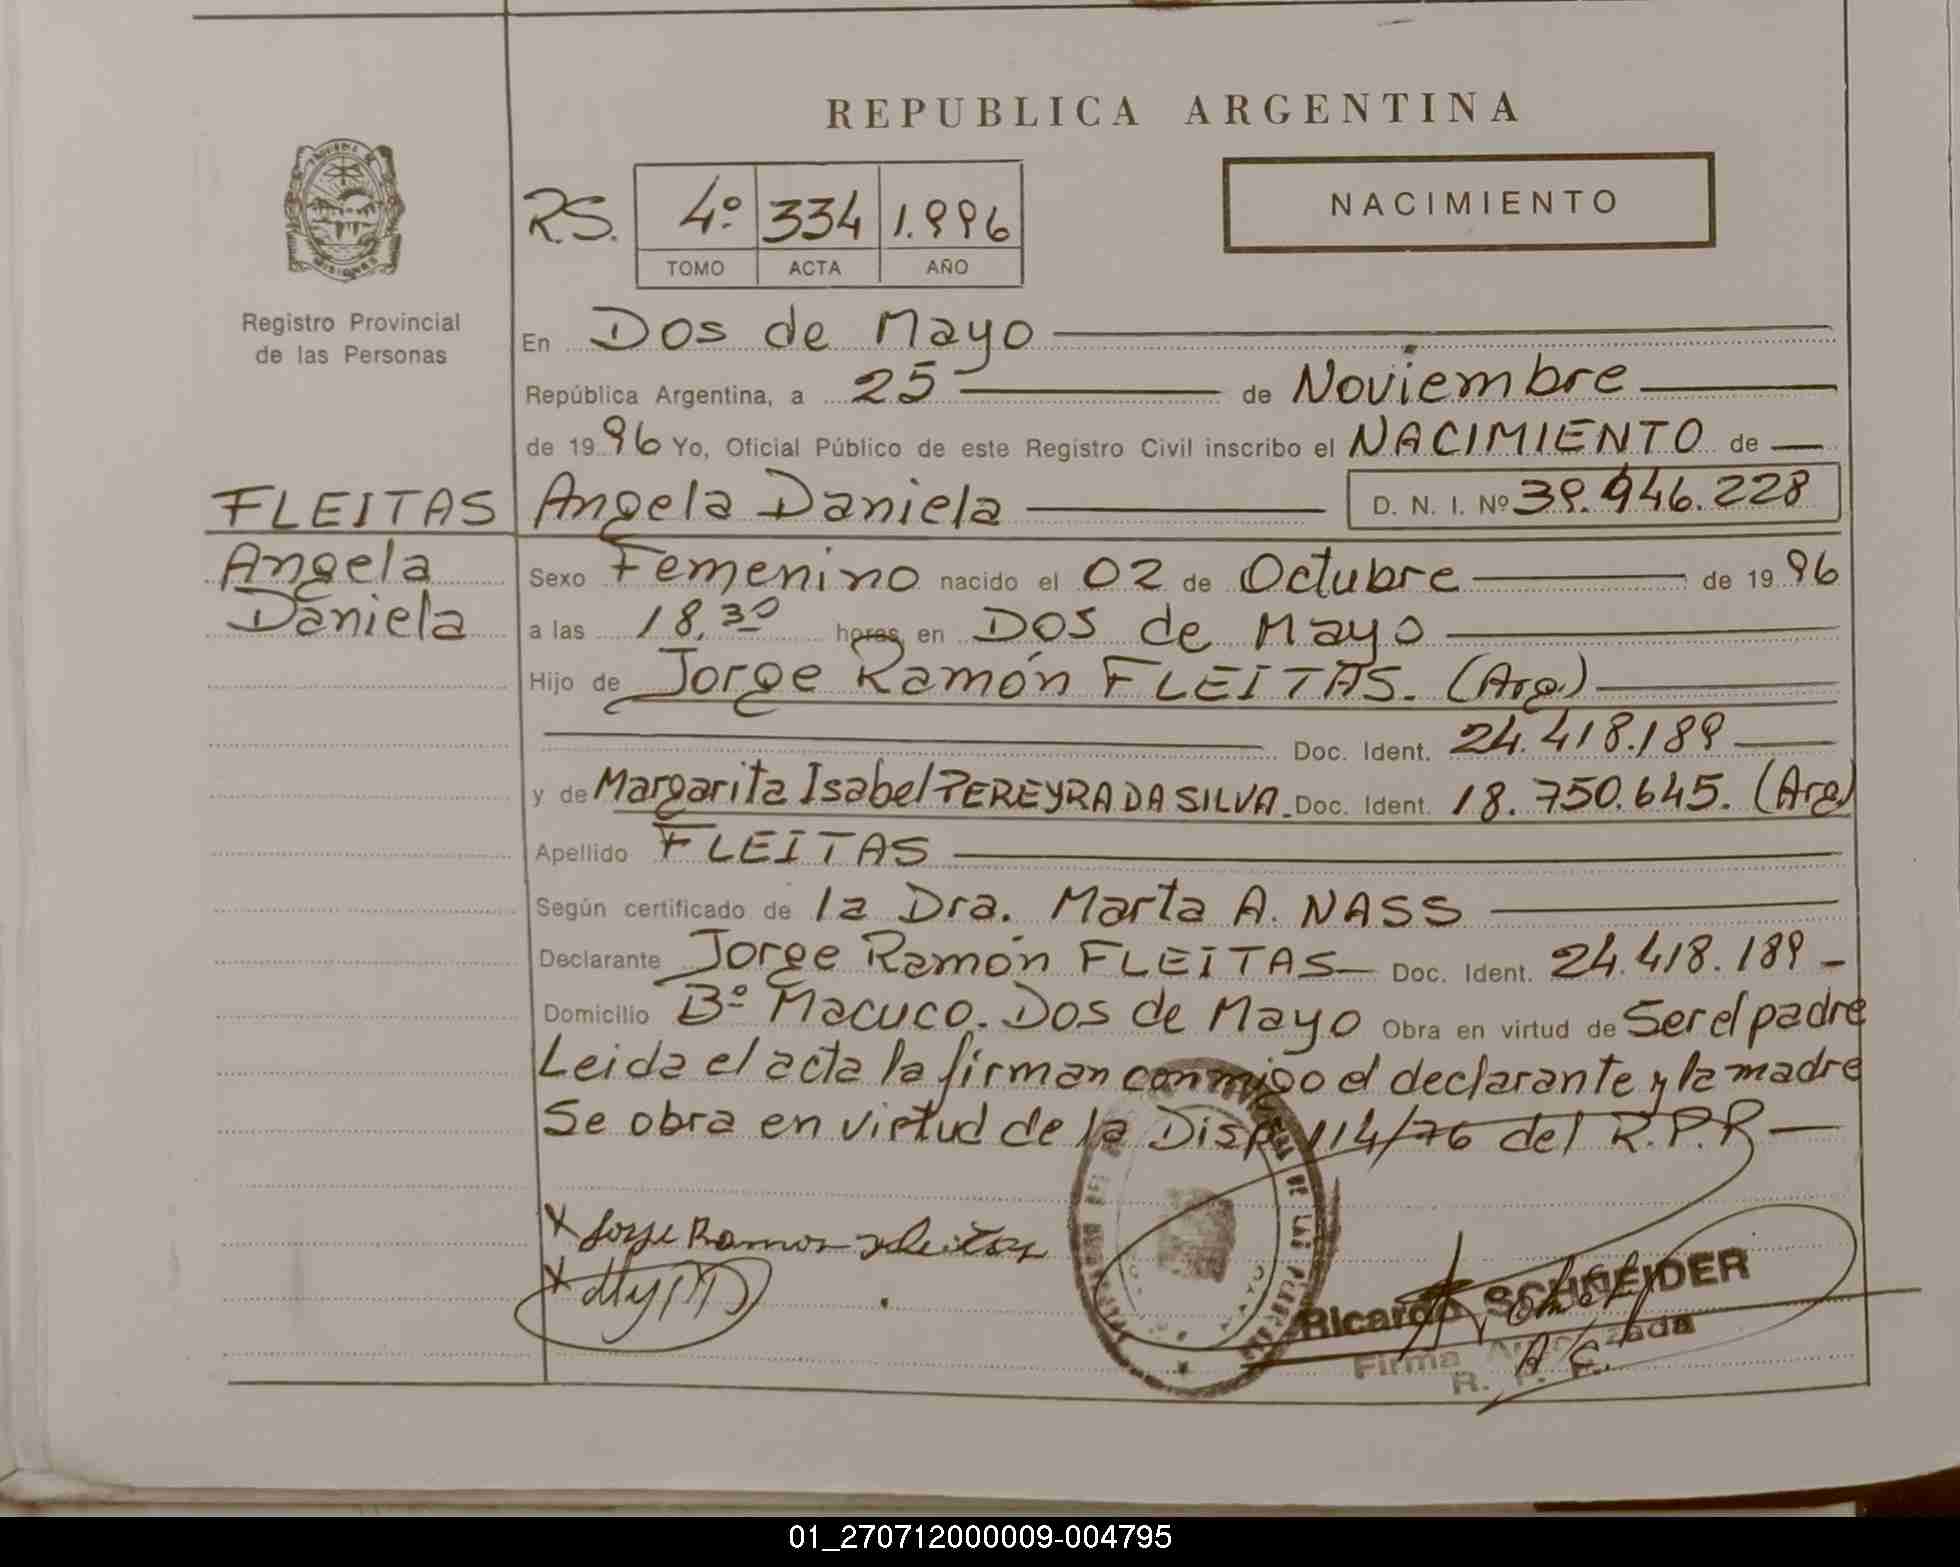 REPUBLICA ARGENTINA
NACIMIENTO
R.S. 4º 334 1.996
TOMO ACTA AÑO
Registro Provincial
de las Personas
En Dos de Mayo
República Argentina, a 25 de Noviembre
de 1996 Yo, Oficial Público de este Registro Civil inscribo el NACIMIENTO de
FLEITAS Angela Daniela D. N. I. Nº 39.946.228
Angela
Daniela
Sexo Femenino nacido el 02 de Octubre de 1996
a las 18,30 horas en Dos de Mayo
Hijo de Jorge Ramón FLEITAS. (Arg.)
Doc. Ident. 24.418.189
y de Margarita Isabel PEREYRA DA SILVA. Doc. Ident. 18.750.645. (Arg)
Apellido FLEITAS
Según certificado de la Dra. Marta A. NASS
Declarante Jorge Ramón FLEITAS Doc. Ident. 24.418.189
Domicilio Bº Macuco. Dos de Mayo Obra en virtud de Ser el padre
Leida el acta la firman conmigo el declarante y la madre
Se obra en virtud de la Disp. 114/76 del R.P.P
x Jorge Ramon Fleitas
x
Ricardo SCHNEIDER
Firma
01_270712000009-004795